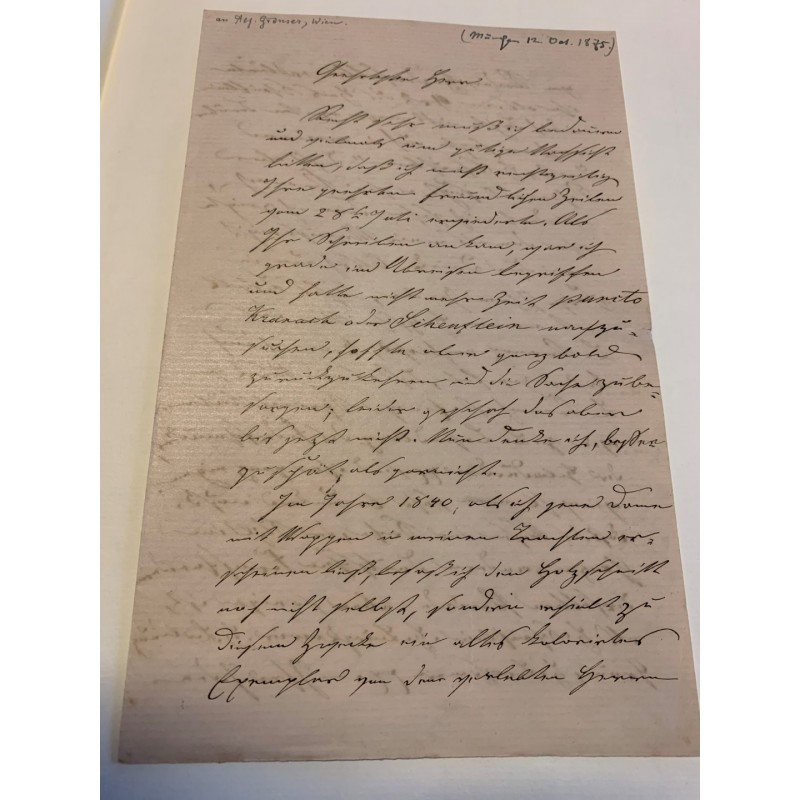 an Reg. Grauser, Wien.
(München 12 Oct. 1875.)
Geehrtester Herr
Recht sehr muß ich bedauern
und vielmals um gütige Nachsicht
bitten, daß ich nicht rechtzeitig
Ihre geehrten freundlichen Zeilen
vom 28t Juli erwiederte. Als
Ihr Schreiben ankam, war ich
grade im Abreisen begriffen
und hatte nicht mehr Zeit puncto
Kranach oder Lihenstein nachzu-
suchen, hoffte aber ganz bald
zurückzukehren und die Sache zu be-
sorgen; leider geschah das aber
bis jetzt nicht. Nun denke ich, besser
zu spät, als gar nicht.
Im Jahre 1840, als ich jene Dame
mit Wappen in meinen Trachten er-
scheinen ließ, besaß ich den Holzschnitt
noch nicht selbst, sondern erhielt zu
diesem Zwecke ein altes kolorirtes
Exemplar von dem verlebten Herrn